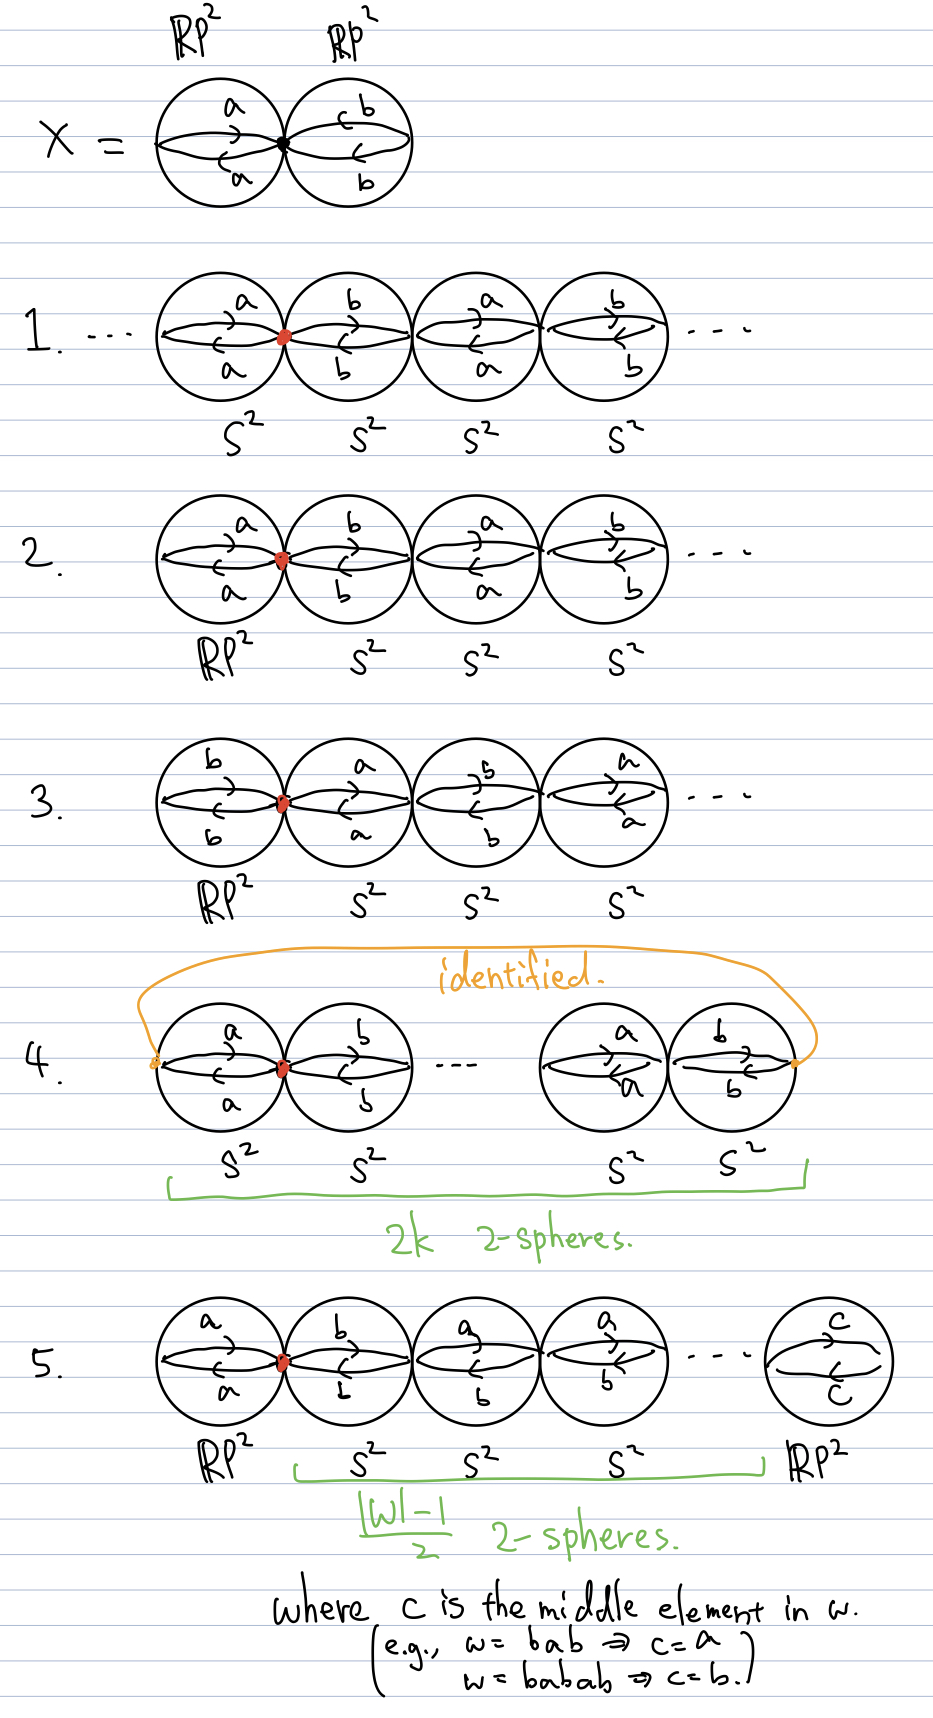 ℝP² ℝP²
X =
a b
a b
1. ... a b a b ...
a b a b
S² S² S² S²
2. a b a b ...
a b a b
ℝP² S² S² S²
3. b a b a ...
b a b a
ℝP² S² S² S²
identified.
4. a b ... a b
a b a b
S² S² S² S²
2k 2-spheres.
5. a b a a ... c
a b b b c
ℝP² S² S² S² ℝP²
|w|-1
2
2-spheres.
where c is the middle element in w.
(e.g., w = bab ⇒ c = a
w = babab ⇒ c = b.)